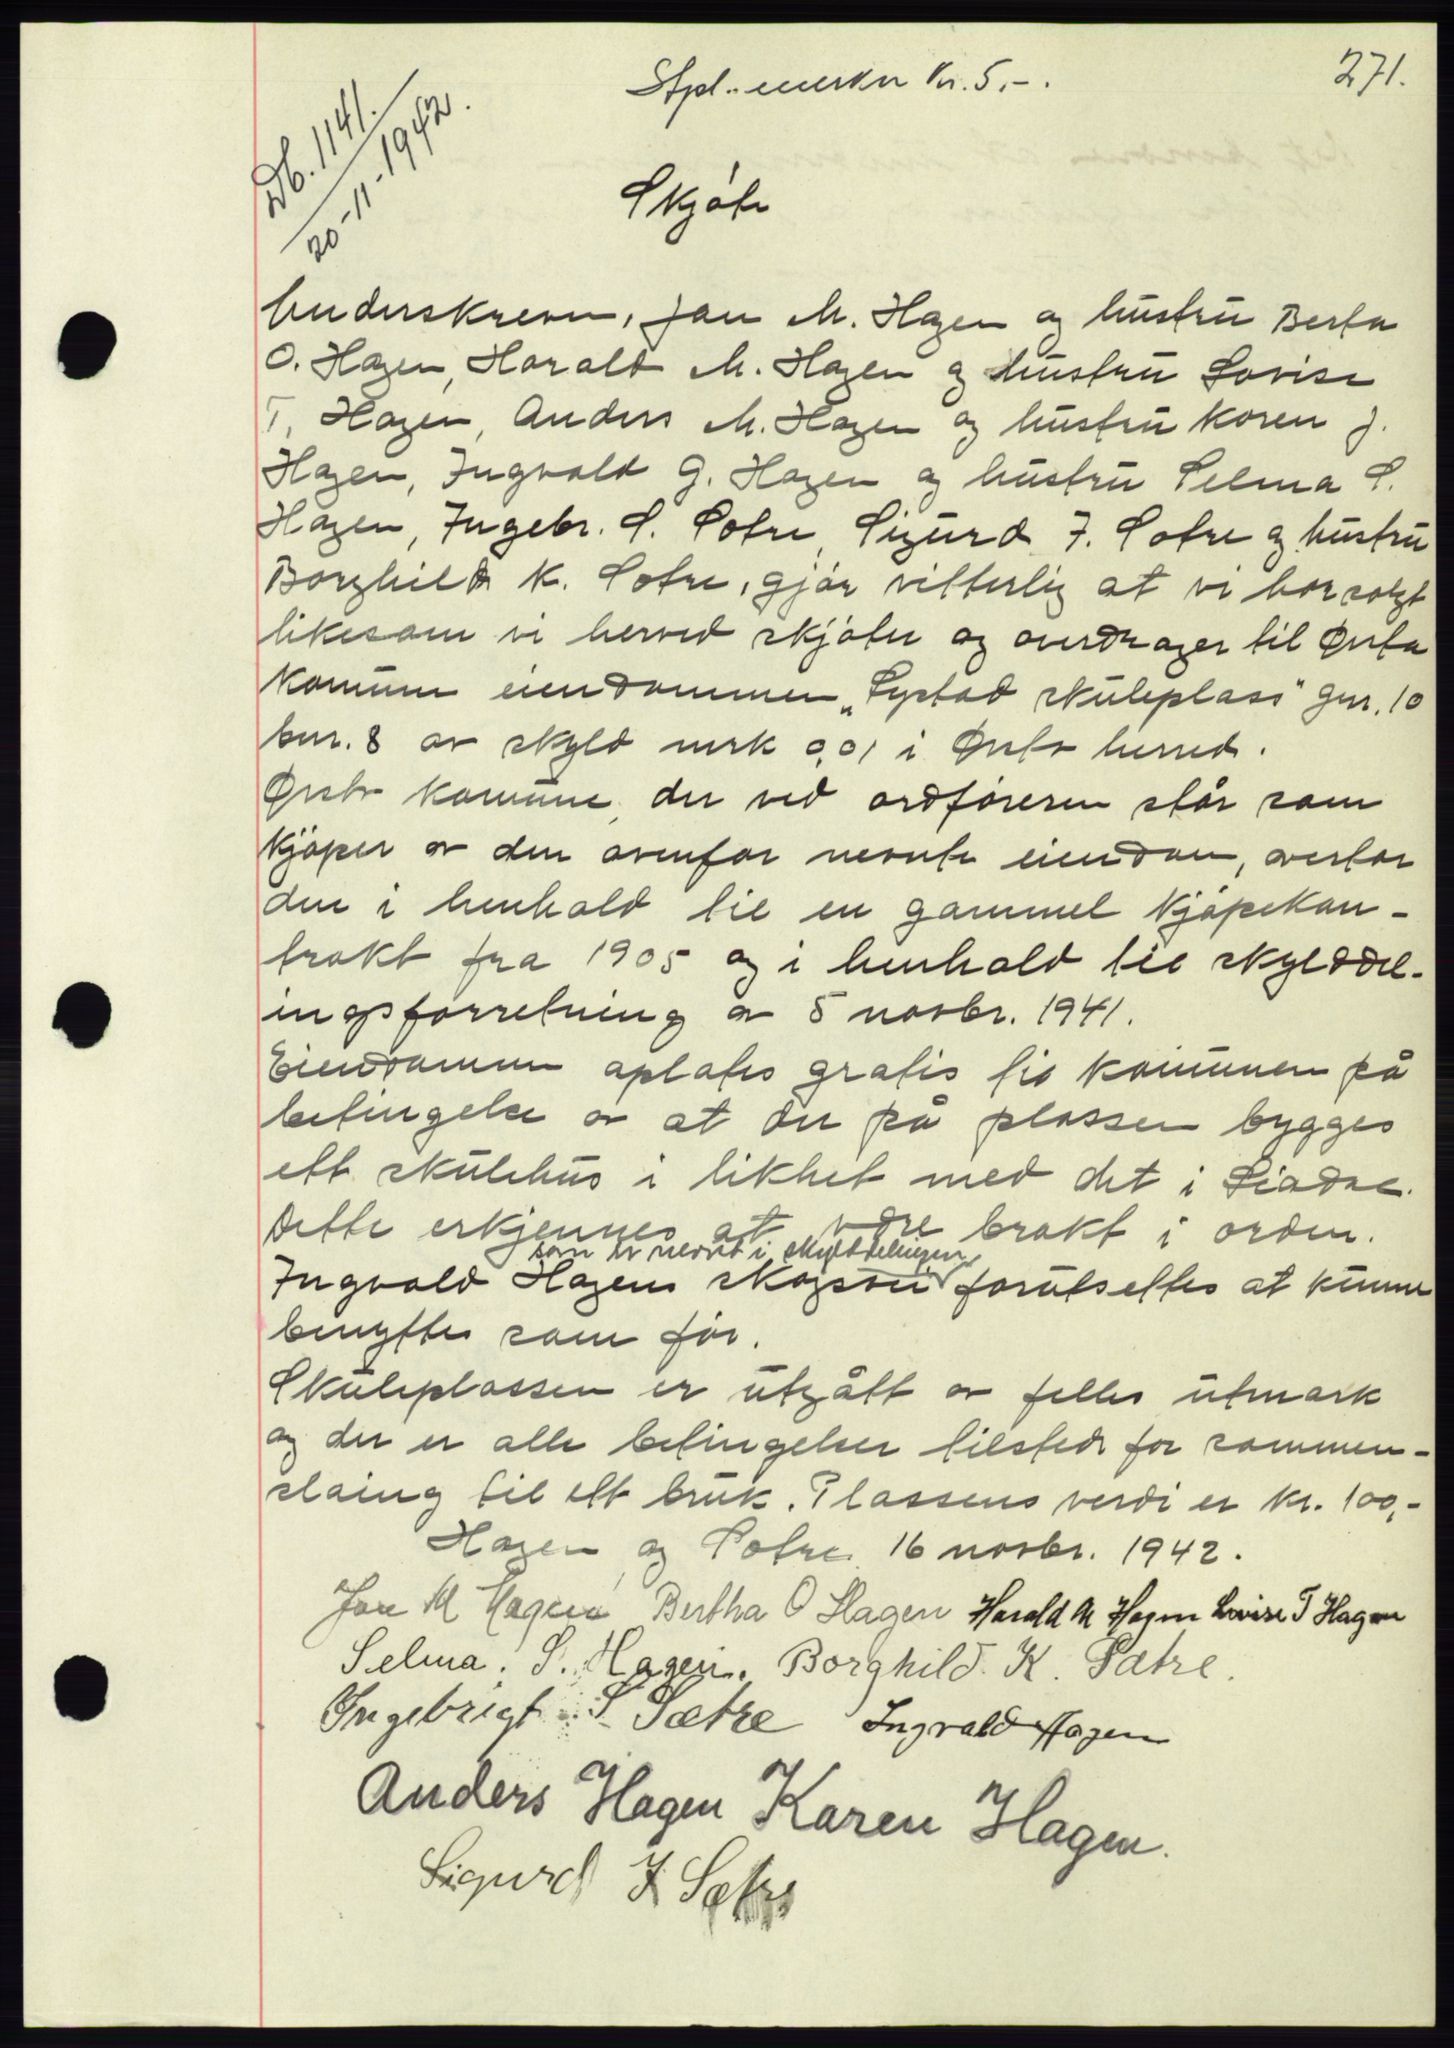 271.
Stpl.-merker kr. 5,-.
Db. 1141.
20-11-1942.
Skjöte
Underskrevne, Jon M. Hagen og hustru Berta
O. Hagen, Harald M. Hagen og hustru Lovise
T. Hagen, Anders M. Hagen og hustru Karen J.
Hagen, Ingvald G. Hagen og hustru Selma S.
Hagen, Ingebr. S. Sætre, Sigurd I. Sætre og hustru
Borghild K. Sætre, gjör vitterlig at vi har solgt
likesom vi herved skjöter og overdrager til Ørsta
komune eiendommen „Systad skuleplass" gnr. 10
bnr. 8 av skyld mrk 0,01 i Ørsta herred.
Ørsta komune, der ved ordföreren står som
kjöper av den ovenfor nevnte eiendom, overtar
den i henhold til en gammel kjöpekon-
trakt fra 1905 og i henhold til skylddel-
ingsforretning av 5 novbr. 1941.
Eiendommen oplates gratis til komunen på
betingelse av at der på plassen bygges
ett skulehus i likhet med det i
Dette erkjennes at være brakt i orden.
som er nevnt i skylddelingen
Ingvald Hagens skogsvei forutsettes at kunne
benyttes som för.
Skuleplassen er utgått av felles utmark
og der er alle betingelser tilstede for sammen-
slåing til ett bruk. Plassens verdi er kr. 100,-
Hagen og Sætre 16 novbr. 1942.
Jon M Hagen Bertha O Hagen Harald M Hagen Lovise T Hagen
Selma. S. Hagen. Borghild. K. Sætre.
Ingebrigt S Sætre Ingvald Hagen
Anders Hagen Karen Hagen.
Sigurd I Sætre